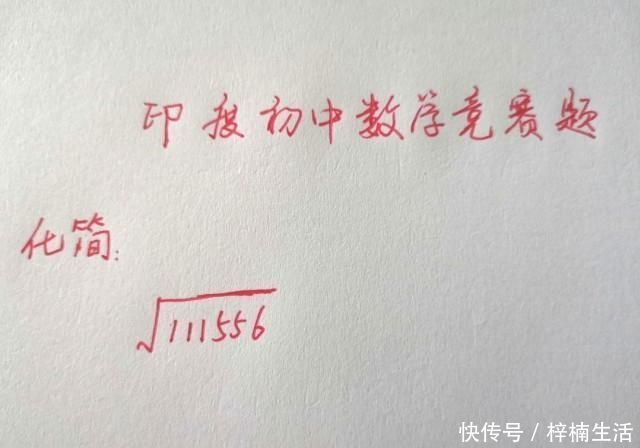 印度初中数学竞赛题
化简:
√111556
快传号/梓楠生活